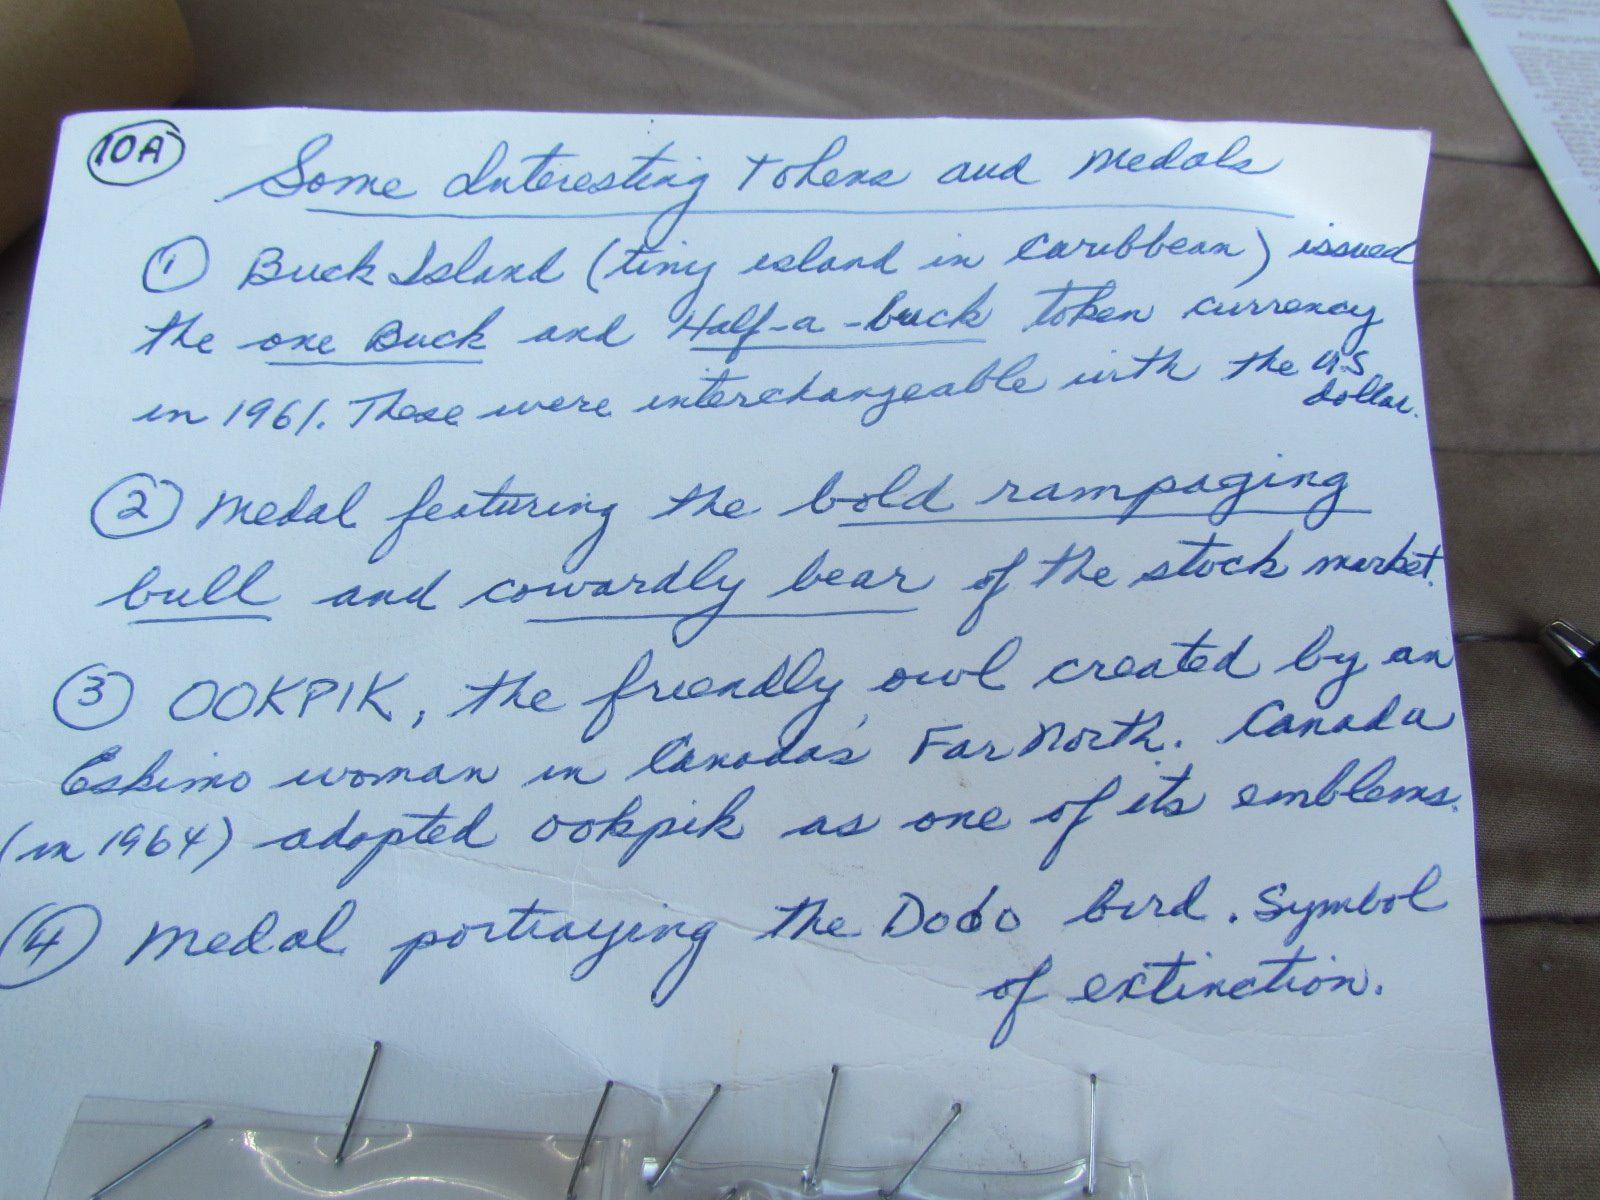 10A
Some Interesting Tokens and Medals
① Buck Island (tiny island in Caribbean) issued
the one Buck and Half-a-buck token currency
in 1961. These were interchangeable with the US
dollar.
② Medal featuring the bold rampaging
bull and cowardly bear of the stock market.
③ OOKPIK, the friendly owl created by an
Eskimo woman in Canada's Far North. Canada
(in 1964) adopted ookpik as one of its emblems.
④ Medal portraying the Dodo bird. Symbol
of extinction.